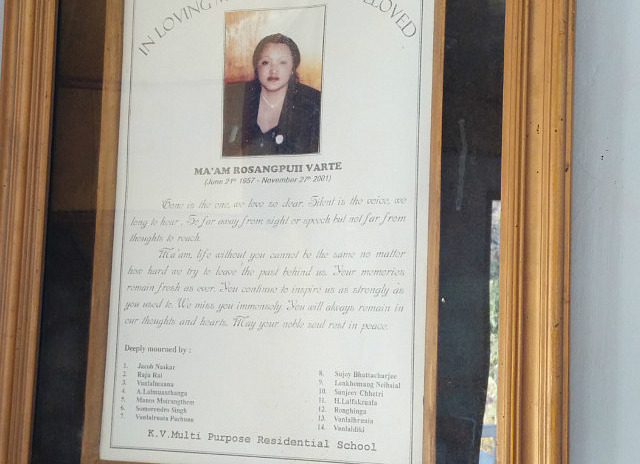 IN LOVING
BELOVED
MA'AM ROSANGPUII VARTE
(June 21st 1957 - November 27th 2001)
Gone is the one, we love so dear. Silent is the voice, we
long to hear. So far away from sight or speech but not far from
thoughts to reach.
Ma'am, life without you cannot be the same no matter
how hard we try to leave the past behind us. Your memories
remain fresh as ever. You continue to inspire us as strongly as
you used to. We miss you immensely. You will always remain in
our thoughts and hearts. May your noble soul rest in peace.
Deeply mourned by :
1. Jacob Naskar
2. Raju Rai
3. Vanlalmuana
4. A.Lalmuanthanga
5. Manos Moirangthem
6. Somorendro Singh
7. Vanlalruata Pachuau
8. Sujoy Bhattacharjee
9. Lenkhomang Neihsial
10. Sanjeev Chhetri
11. H.Lalfakzuala
12. Ronghinga
13. Vanlalhruaia
14. Vanlaldiki
K.V.Multi Purpose Residential School